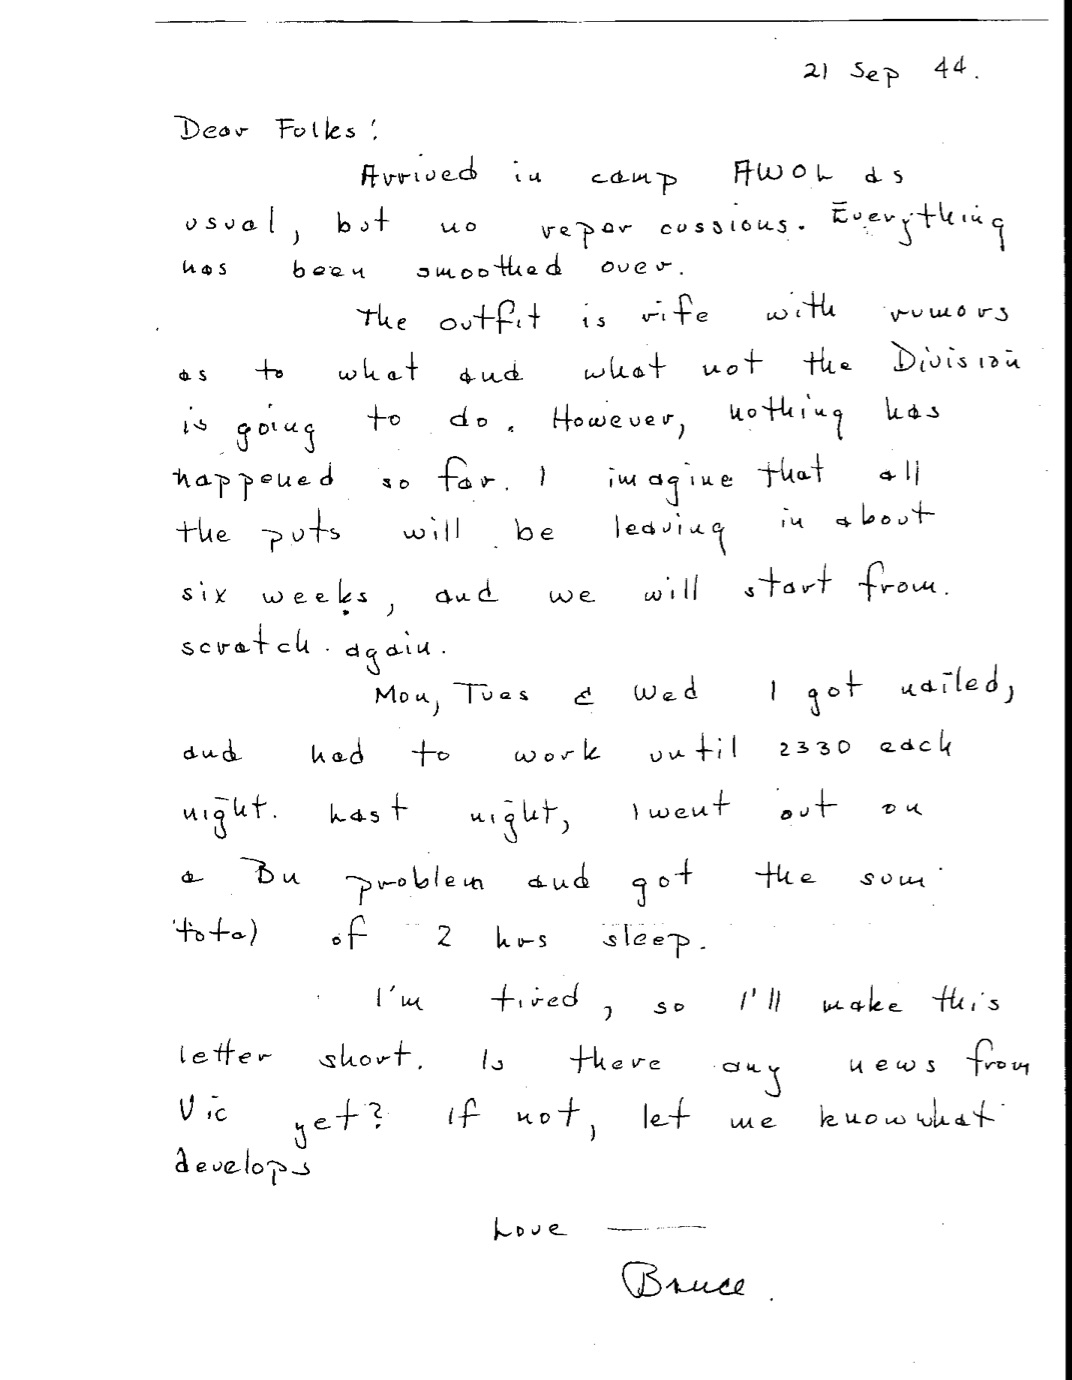 21 Sep 44.
Dear Folks:
Arrived in camp AWOL as
usual, but no repar cussions. Everything
has been smoothed over.
The outfit is rife with rumors
as to what and what not the Division
is going to do. However, nothing has
happened so far. I imagine that all
the puts will be leaving in about
six weeks, and we will start from
scratch again.
Mon, Tues & Wed I got nailed,
and had to work until 2330 each
night. Last night, I went out on
a Bn problem and got the sum
total of 2 hrs sleep.
I'm tired, so I'll make this
letter short. Is there any news from
Vic yet? If not, let me know what
develops
Love —
Bruce.